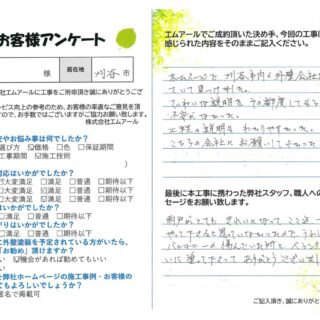 お客様アンケート
様
所在地
刈谷 市
社エムアールに工事をご用命頂き誠にありがとうござ
ービス向上の参考のため、お客様の率直なご意見を頂
すので、お手数ではございますがご協力お願い致します。
株式会社エムアール
安やお悩み事は何でしたか？
選び方 ☑価格 □色 □保証期間
工事期間 ☑施工技術
対応はいかがでしたか？
□大変満足 □満足 □普通 □期待以下
□大変満足 □満足 □普通 □期待以下
りはいかがでしたか？
□満足 □普通 □期待以下
はいかがでしたか？
□満足 □普通 □期待以下
に外壁塗装を予定されている方がいたら、
「お勧め」頂けますか？
い ☑機会があれば勧めてもいい
を弊社ホームページの施工事例・お客様の
てもよろしいでしょうか？
匿名で掲載可
エムアールでご成約頂いた決め手、今回の工事に
感じられた内容をそのままご記入ください。
ホームページで 刈谷市内の外壁会社
て見つけました。
ていねいな説明を
不安がなかった。
工程の説明も わかりやすかった。
こちらの会社に お願いしてよかった
最後に本工事に携わった弊社スタッフ、職人への
セージをお願い致します。
雨戸がとても きれいになって
やって下さると思っていなかったので
バルコニーの傷んでいた所も
いに塗って下さって ありがとうございました
ご記入頂き、誠にありがと